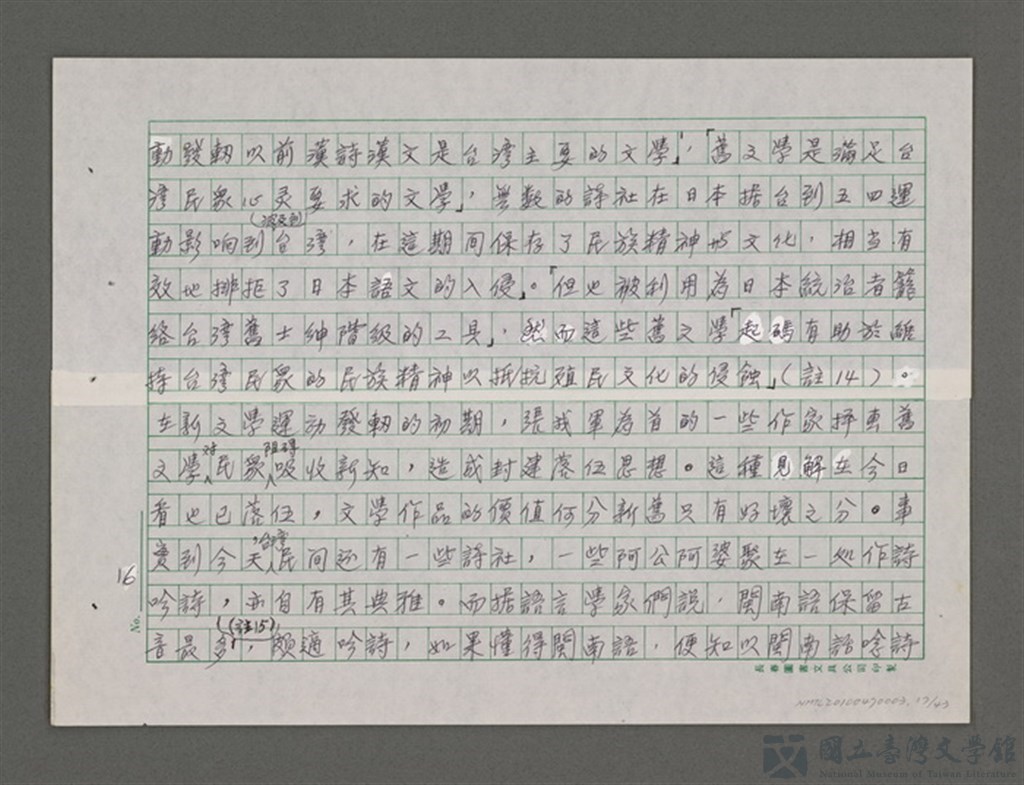 動發軔以前漢詩漢文是台湾主要的文學」,「舊文學是滿足台
湾民衆心灵要求的文學」,無数的詩社在日本据台到五四運
(波及到)
動影响到台湾,在這期间保存了民族精神与文化,相当有
效地排拒了日本語文的入侵」。「但也被利用為日本統治者籠
絡台湾舊士紳階級的工具」,然而這些舊文學「起碼有助於維
持台湾民衆的民族精神以抵抗殖民文化的侵蝕」(註14)。
在新文學運动發軔的初期,張我軍為首的一些作家抨击舊
对 阻碍
文學民衆吸收新知,造成封建落伍思想。這種見解在今日
看也已落伍,文學作品的價值何分新舊只有好壞之分。事
,台湾
實到今天民间还有一些詩社,一些阿公阿婆聚在一起作詩
吟詩,亦自有其典雅。而据語言學家們說,閩南語保留古
(註15)
音最多,頗適吟詩,如果懂得閩南語,便知以閩南話唸詩
16
No.
長春圖書文具公司印製
NMTL20100460003 17/43
國立臺灣文學館
National Museum of Taiwan Literature